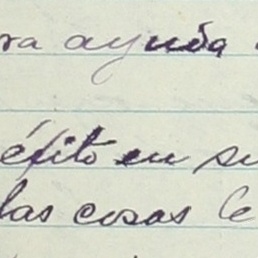 ra ayuda
éxito en su
las cosas le